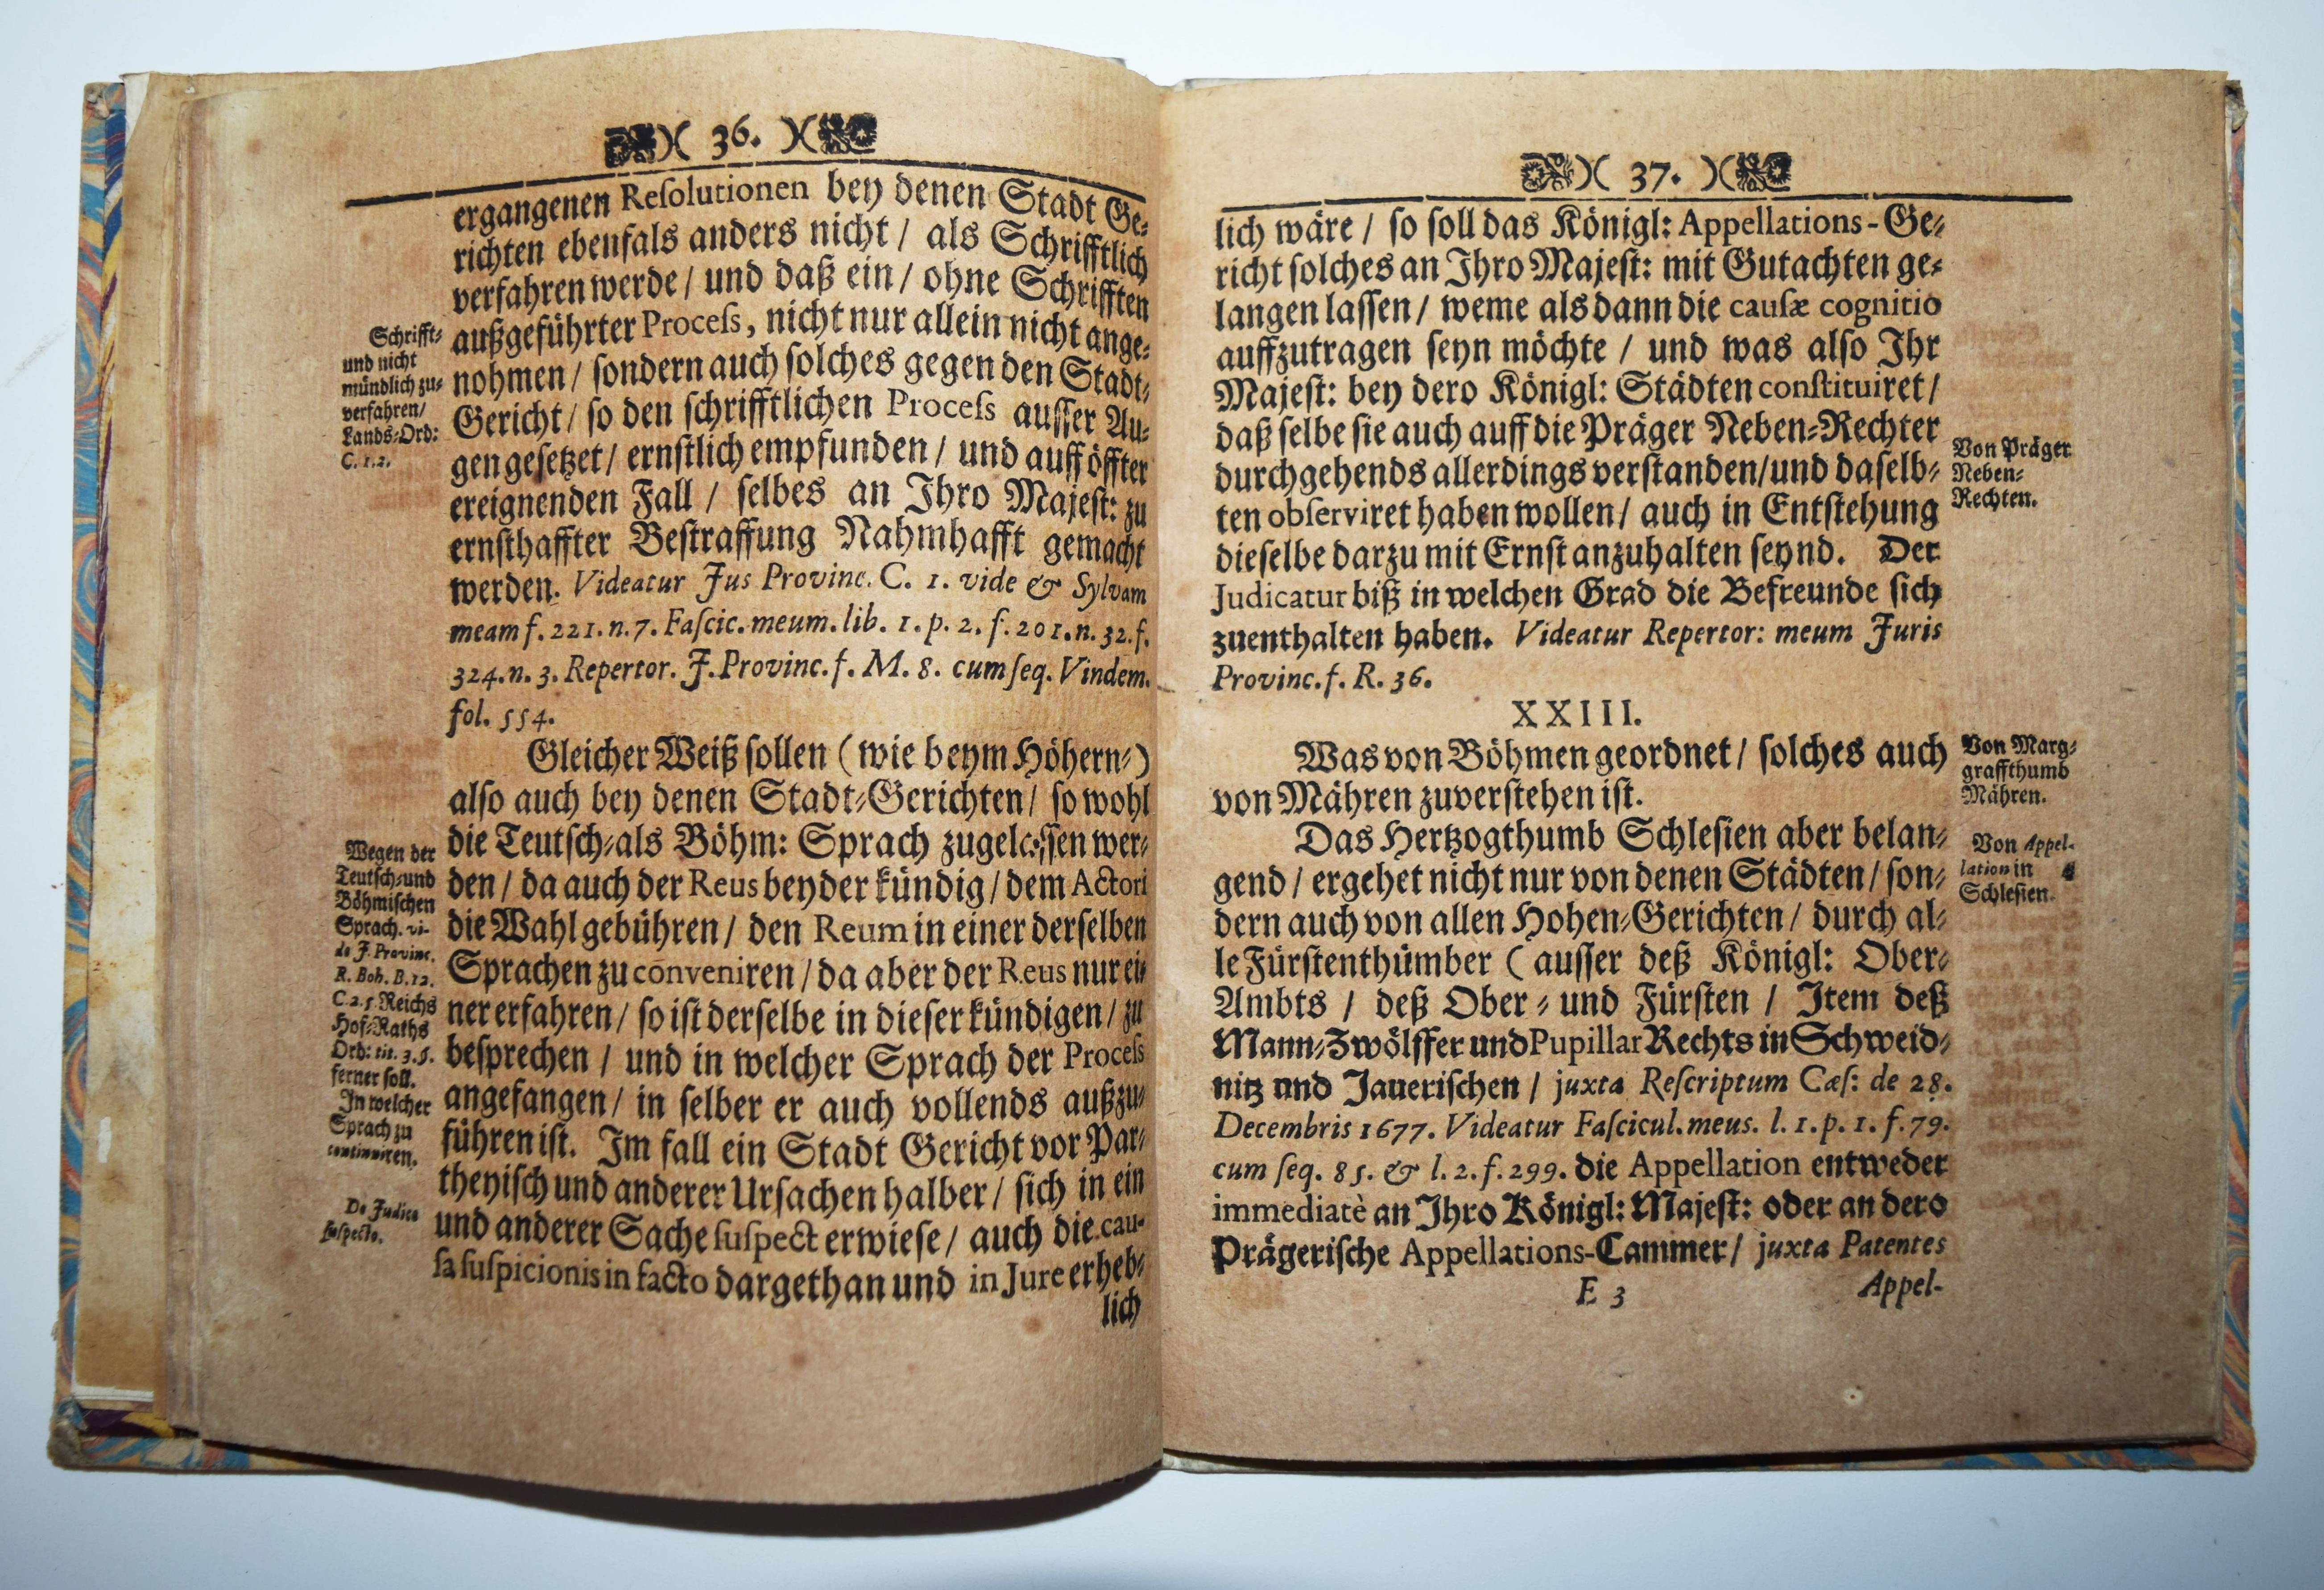 36.
ergangenen Reſolutionen bey denen Stadt Ge⸗
richten ebenfals anders nicht / als Schrifftlich
verfahren werde / und daß ein / ohne Schrifften
außgeführter Proceſs, nicht nur allein nicht ange⸗
nohmen / ſondern auch ſolches gegen den Stadt⸗
Gericht / ſo den ſchrifftlichen Proceſs auſſer Au⸗
gen geſetzet / ernſtlich empfunden / und auff öffter
ereignenden Fall / ſelbes an Ihro Majeſt: zu
ernſthaffter Beſtraffung Nahmhafft gemacht
werden. Videatur Jus Provinc. C. 1. vide & Sylvam
meam f. 221. n. 7. Faſcic. meum. lib. 1. p. 2. f. 201. n. 32. f.
324. n. 3. Repertor. J. Provinc. f. M. 8. cum ſeq. Vindem.
fol. 554.
Schrifft⸗
und nicht
mündlich zu⸗
verfahren /
Lands⸗Ord:
C. 1. 2.
Gleicher Weiß ſollen ( wie beym Höhern⸗ )
alſo auch bey denen Stadt⸗Gerichten / ſo wohl
die Teutſch⸗als Böhm: Sprach zugelaſſen wer⸗
den / da auch der Reus beyder kündig / dem Actori
die Wahl gebühren / den Reum in einer derſelben
Sprachen zu conveniren / da aber der Reus nur ei⸗
ner erfahren / ſo iſt derſelbe in dieſer kündigen / zu
beſprechen / und in welcher Sprach der Proceſs
angefangen / in ſelber er auch vollends außzu⸗
führen iſt. Im fall ein Stadt Gericht vor Par⸗
theyiſch und anderer Urſachen halber / ſich in ein
und anderer Sache ſuſpect erwieſe / auch die cau-
ſa ſuſpicionis in facto dargethan und in Jure erheb⸗
lich
Wegen der
Teutſch⸗und
Böhmiſchen
Sprach. vi-
de J. Provinc.
R. Boh. B. 12.
C 2. 5. Reichs
Hof⸗Raths
Ord: tit. 3. 5.
ferner ſoll.
In welcher
Sprach zu
continuiren.
De Judice
ſuſpecto.
37.
lich wäre / ſo ſoll das Königl: Appellations-Ge⸗
richt ſolches an Ihro Majeſt: mit Gutachten ge⸗
langen laſſen / weme alsdann die cauſæ cognitio
auffzutragen ſeyn möchte / und was alſo Ihr
Majeſt: bey dero Königl: Städten conſtituiret /
daß ſelbe ſie auch auff die Präger Neben⸗Rechter
durchgehends allerdings verſtanden / und daſelb⸗
ten obſerviret haben wollen / auch in Entſtehung
dieſelbe darzu mit Ernſt anzuhalten ſeynd. Der
Judicatur biß in welchen Grad die Befreunde ſich
zuenthalten haben. Videatur Repertor: meum Juris
Provinc. f. R. 36.
Von Präger
Neben⸗
Rechten.
XXIII.
Was von Böhmen geordnet / ſolches auch
von Mähren zuverſtehen iſt.
Von Marg⸗
graffthumb
Mähren.
Das Hertzogthumb Schleſien aber belan⸗
gend / ergehet nicht nur von denen Städten / ſon⸗
dern auch von allen Hohen⸗Gerichten / durch al⸗
le Fürſtenthümber ( auſſer deß Königl: Ober⸗
Ambts / deß Ober⸗ und Fürſten / Item deß
Mann⸗Zwölffer und Pupillar Rechts in Schweid⸗
nitz und Jaueriſchen / juxta Reſcriptum Cæſ: de 28.
Decembris 1677. Videatur Faſcicul. meus. l. 1. p. 1. f. 79.
cum ſeq. 85. & l. 2. f. 299. die Appellation entweder
immediatè an Ihro Königl: Majeſt: oder an dero
Prägeriſche Appellations-Cammer / juxta Patentes
Von Appel-
lation in
Schleſien.
E 3
Appel-